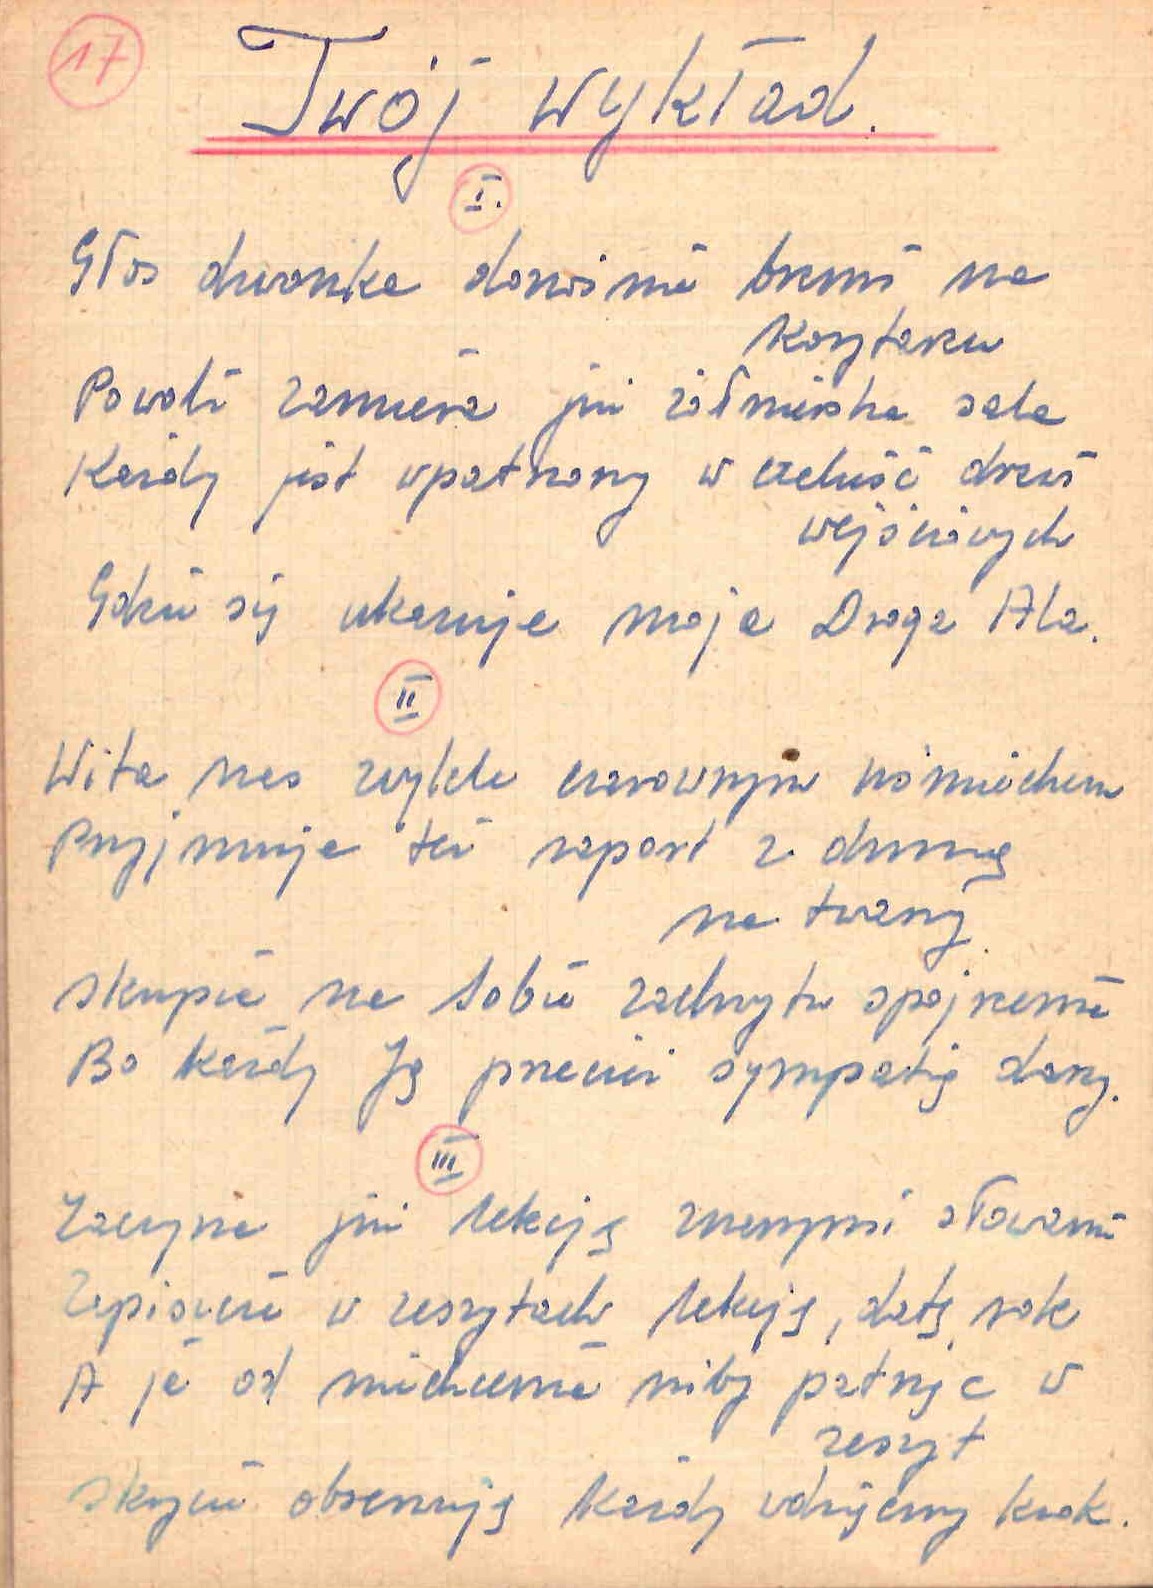 17
Twój wykład.
I.
Głos dzwonka donośnie brzmi na
korytarzu
Powoli zamiera już żołnierska sala
Każdy jest wpatrzony w czeluść drzwi
wejściowych
Gdzie się ukazuje moja Droga Ala.
II
Wita nas zwykle czarownym uśmiechem
Przyjmuje też raport z dumą
na twarzy
Skupia na Sobie zachwytu spojrzenia
Bo każdy Ją przecież sympatią darzy.
III
Zaczyna już lekcję znanymi słowami
Zapiszcie w zeszytach lekcję, datę, rok
A ja od niechcenia niby patrząc w
zeszyt
Skrycie obserwuję każdy wdzięczny krok.